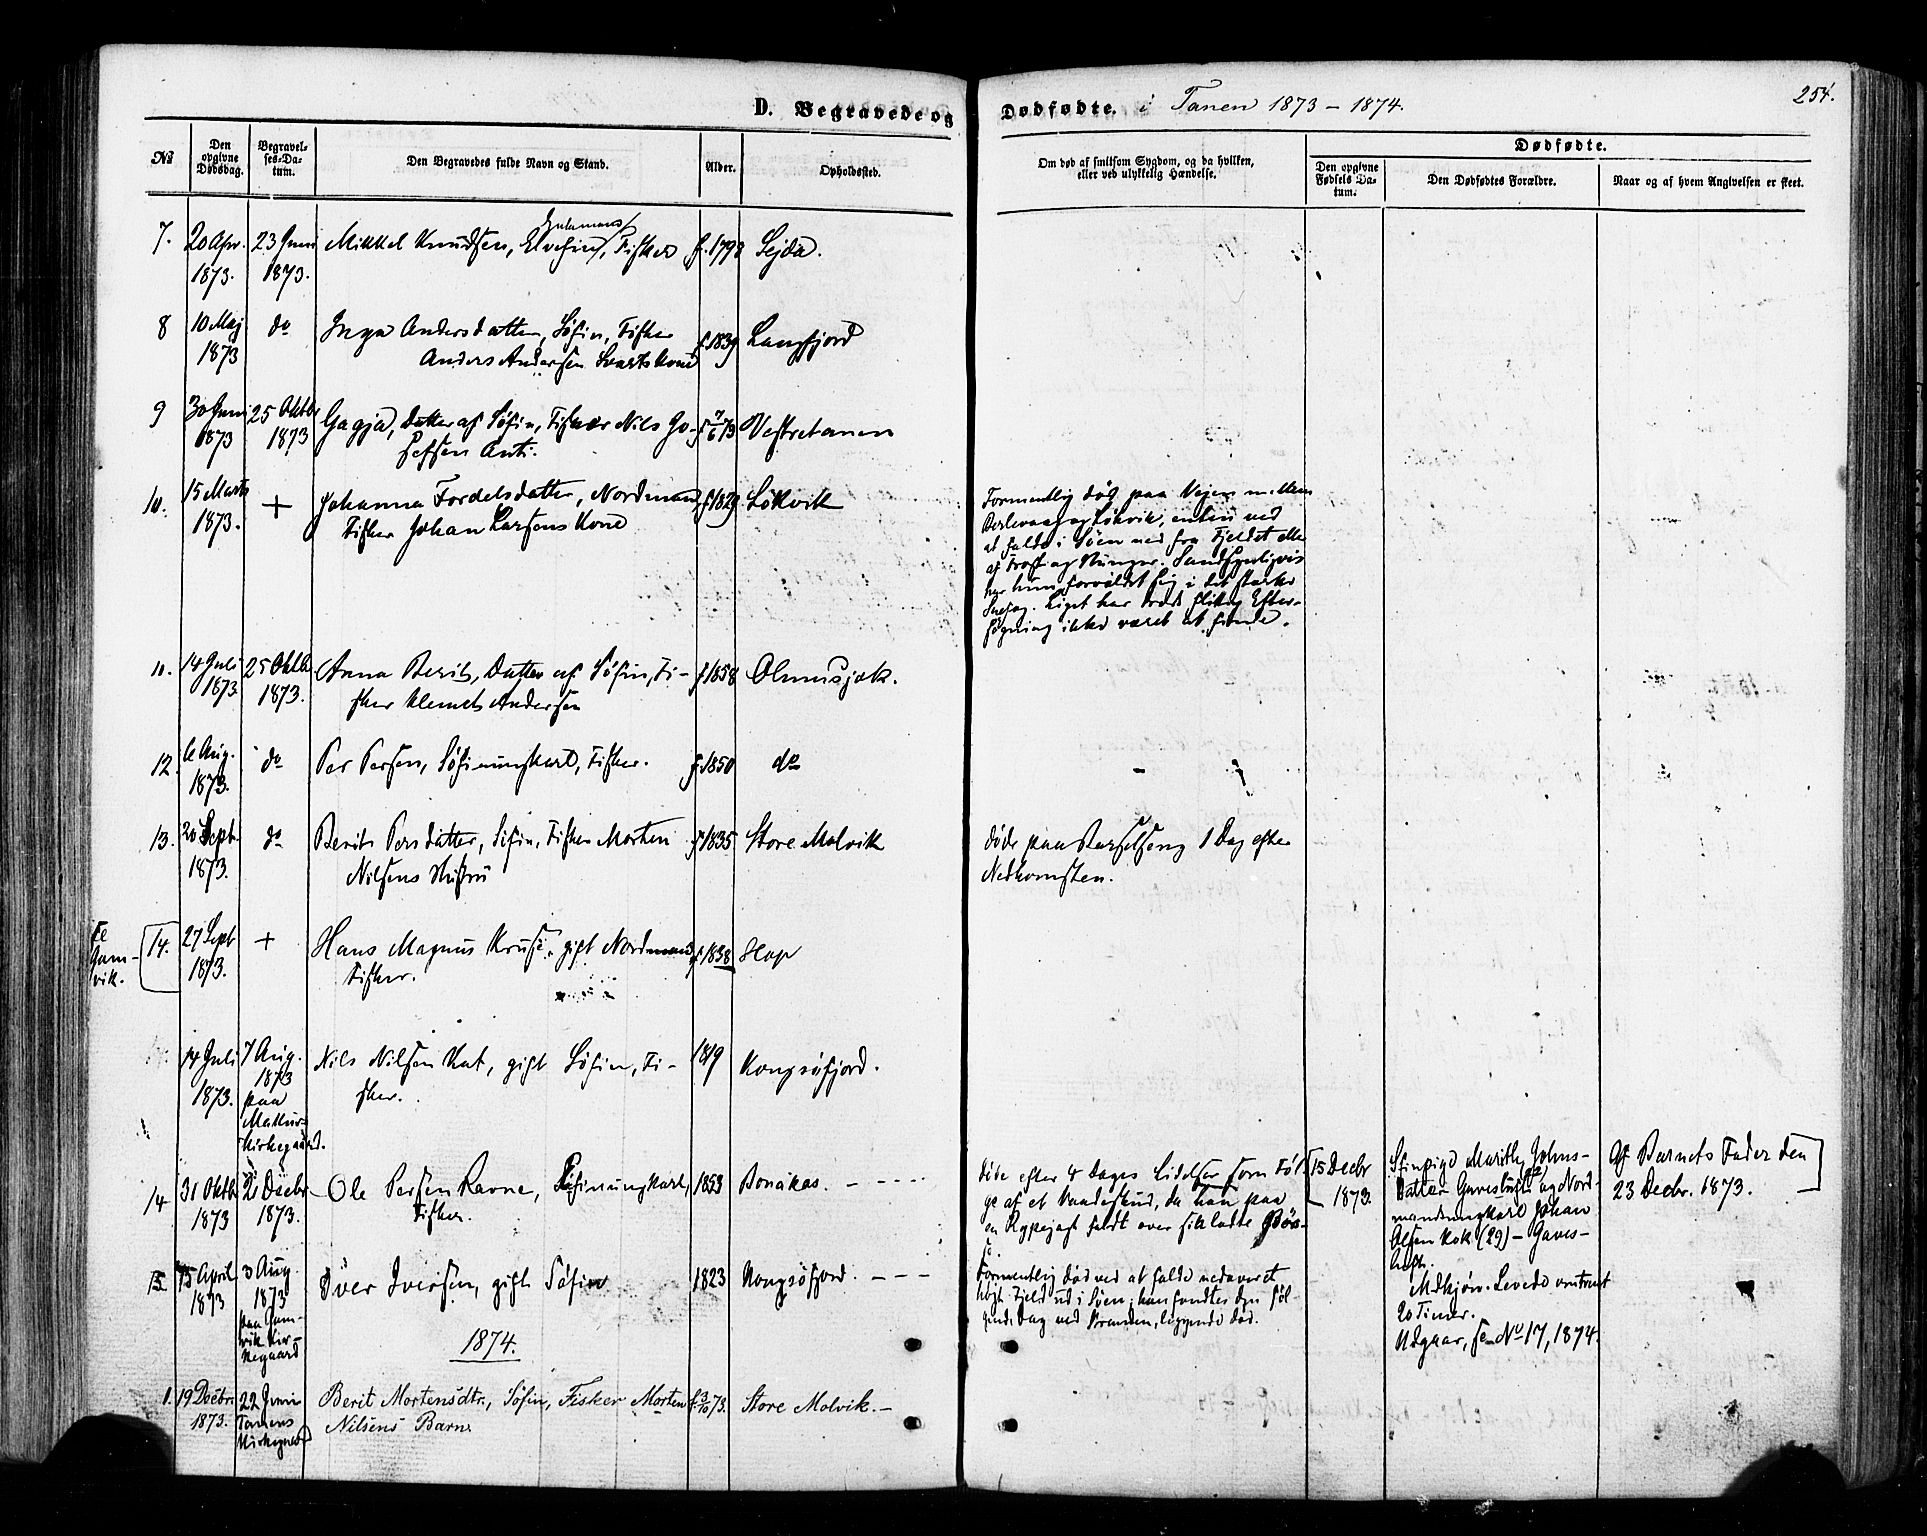 254.
D. Begravede og Dødfødte. i Tanen 1873 – 1874.
No
Den opgivne Dødsdag.
Begravelses-Datum.
Den Begravedes fulde Navn og Stand.
Alder.
Opholdssted.
Om død af smitsom Sygdom, og da hvilken, eller ved ulykkelig Hændelse.
Dødfødte.
Den opgivne Fødsels Datum.
Den Dødfødtes Forældre.
Naar og af hvem Angivelsen er skeet.
7. 20 Apr. 23 Juni Mikkel Knudsen, Elvefin, Fisker f. 1798 Sejda.
1873. 1873.
8 10 Maj do Inga Andersdatter, Søfin, Fisker f 1839 Langfjord
1873 Anders Andersen Svarts Kone
9 30 Juni 25 Oktbr Gagja, Datter af Søfin, Fisker Nils Jo- Vestretanen
1873 1873 sefsen Anti.
10. 15 Marts + Johanna Fordelsdatter, Nordmand, f 1829 Løkvik
1873. Fisker Johan Larsens Kone
Formentlig død paa Vejen mellem
Berlevaag og Løkvik, enten ved
at falde i Søen ned fra Fjeldet eller
af Frost og Hunger. Sandsynligvis
har hun forvildet sig i det stærke
Snefog. Liget har trods flittig Efter-
søgning ikke været at finde.
11. 14 Juli 25 Oktbr Anna Berit, Datter af Søfin, Fi- f 1858 Olmusjok.
1873 1873. sker Klemet Andersen
12. 6 Aug. do Per Persen, Søfinungkarl, Fisker. f 1850 do
1873.
13. 20 Sept. do Berit Persdatter, Søfin, Fisker Morten f 1835 Store Molvik
1873. Nilsens Hustru
døde paa Barselseng 1 Dag efter
Nedkomsten.
Se
Gam-
vik.
14. 27 Sept + Hans Magnus Kruse, gift Nordmand, f 1838 Hop
1873. Fisker.
14 Juli 7 Aug. Nils Nilsen Kat, gift Søfin, Fi- 1819 Kongsøfjord.
1873. 1873 sker.
paa
Makur-
Kirkegaard.
14 31 Oktbr 2 Decbr Ole Persen Ravne, Søfinungkarl, 1853 Bonakas. – – – –
1873 1873. Fisker.
døde efter 4 Dages Lidelser som Føl-
ge af et Vaadeskud, da han paa
en Rypejagt faldt over sit ladte Bøs-
se.
15 Decbr
1873.
Sfinpige Marith Johns-
Datter Gavesluft og Nord-
mandsungkarl Johan
Olsen Kok (29) – Gaves-
luft.
Mdkjøn. Levede omtrent
20 Timer.
Udgaar, se No 17, 1874.
Af Barnets Fader den
23 Decbr. 1873.
15 15 April 3 Aug. Iver Iversen, gift Søfin 1823 Kongsøfjord. – – –
1873 1873
paa Gam-
vik Kir-
kegaard
Formentlig død ved at falde ned over et
højt Fjeld ud i Søen; han fandtes den føl-
gende Dag ved Stranden, liggende død.
1874.
1. 19 Decbr. 22 Juni Berit Mortensdtr., Søfin, Fisker Morten f. 3/10 73. Store Molvik. –
1873. Tanens Nilsens Barn.
Kirkegaard